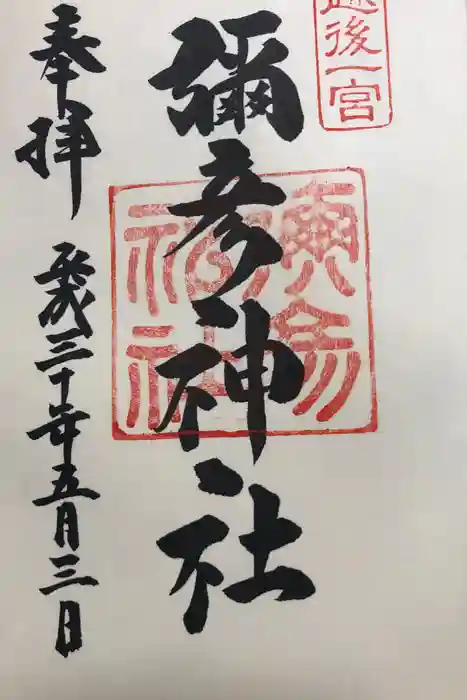 越後一宮
彌彦神社
奉拝
平成三十年五月三日